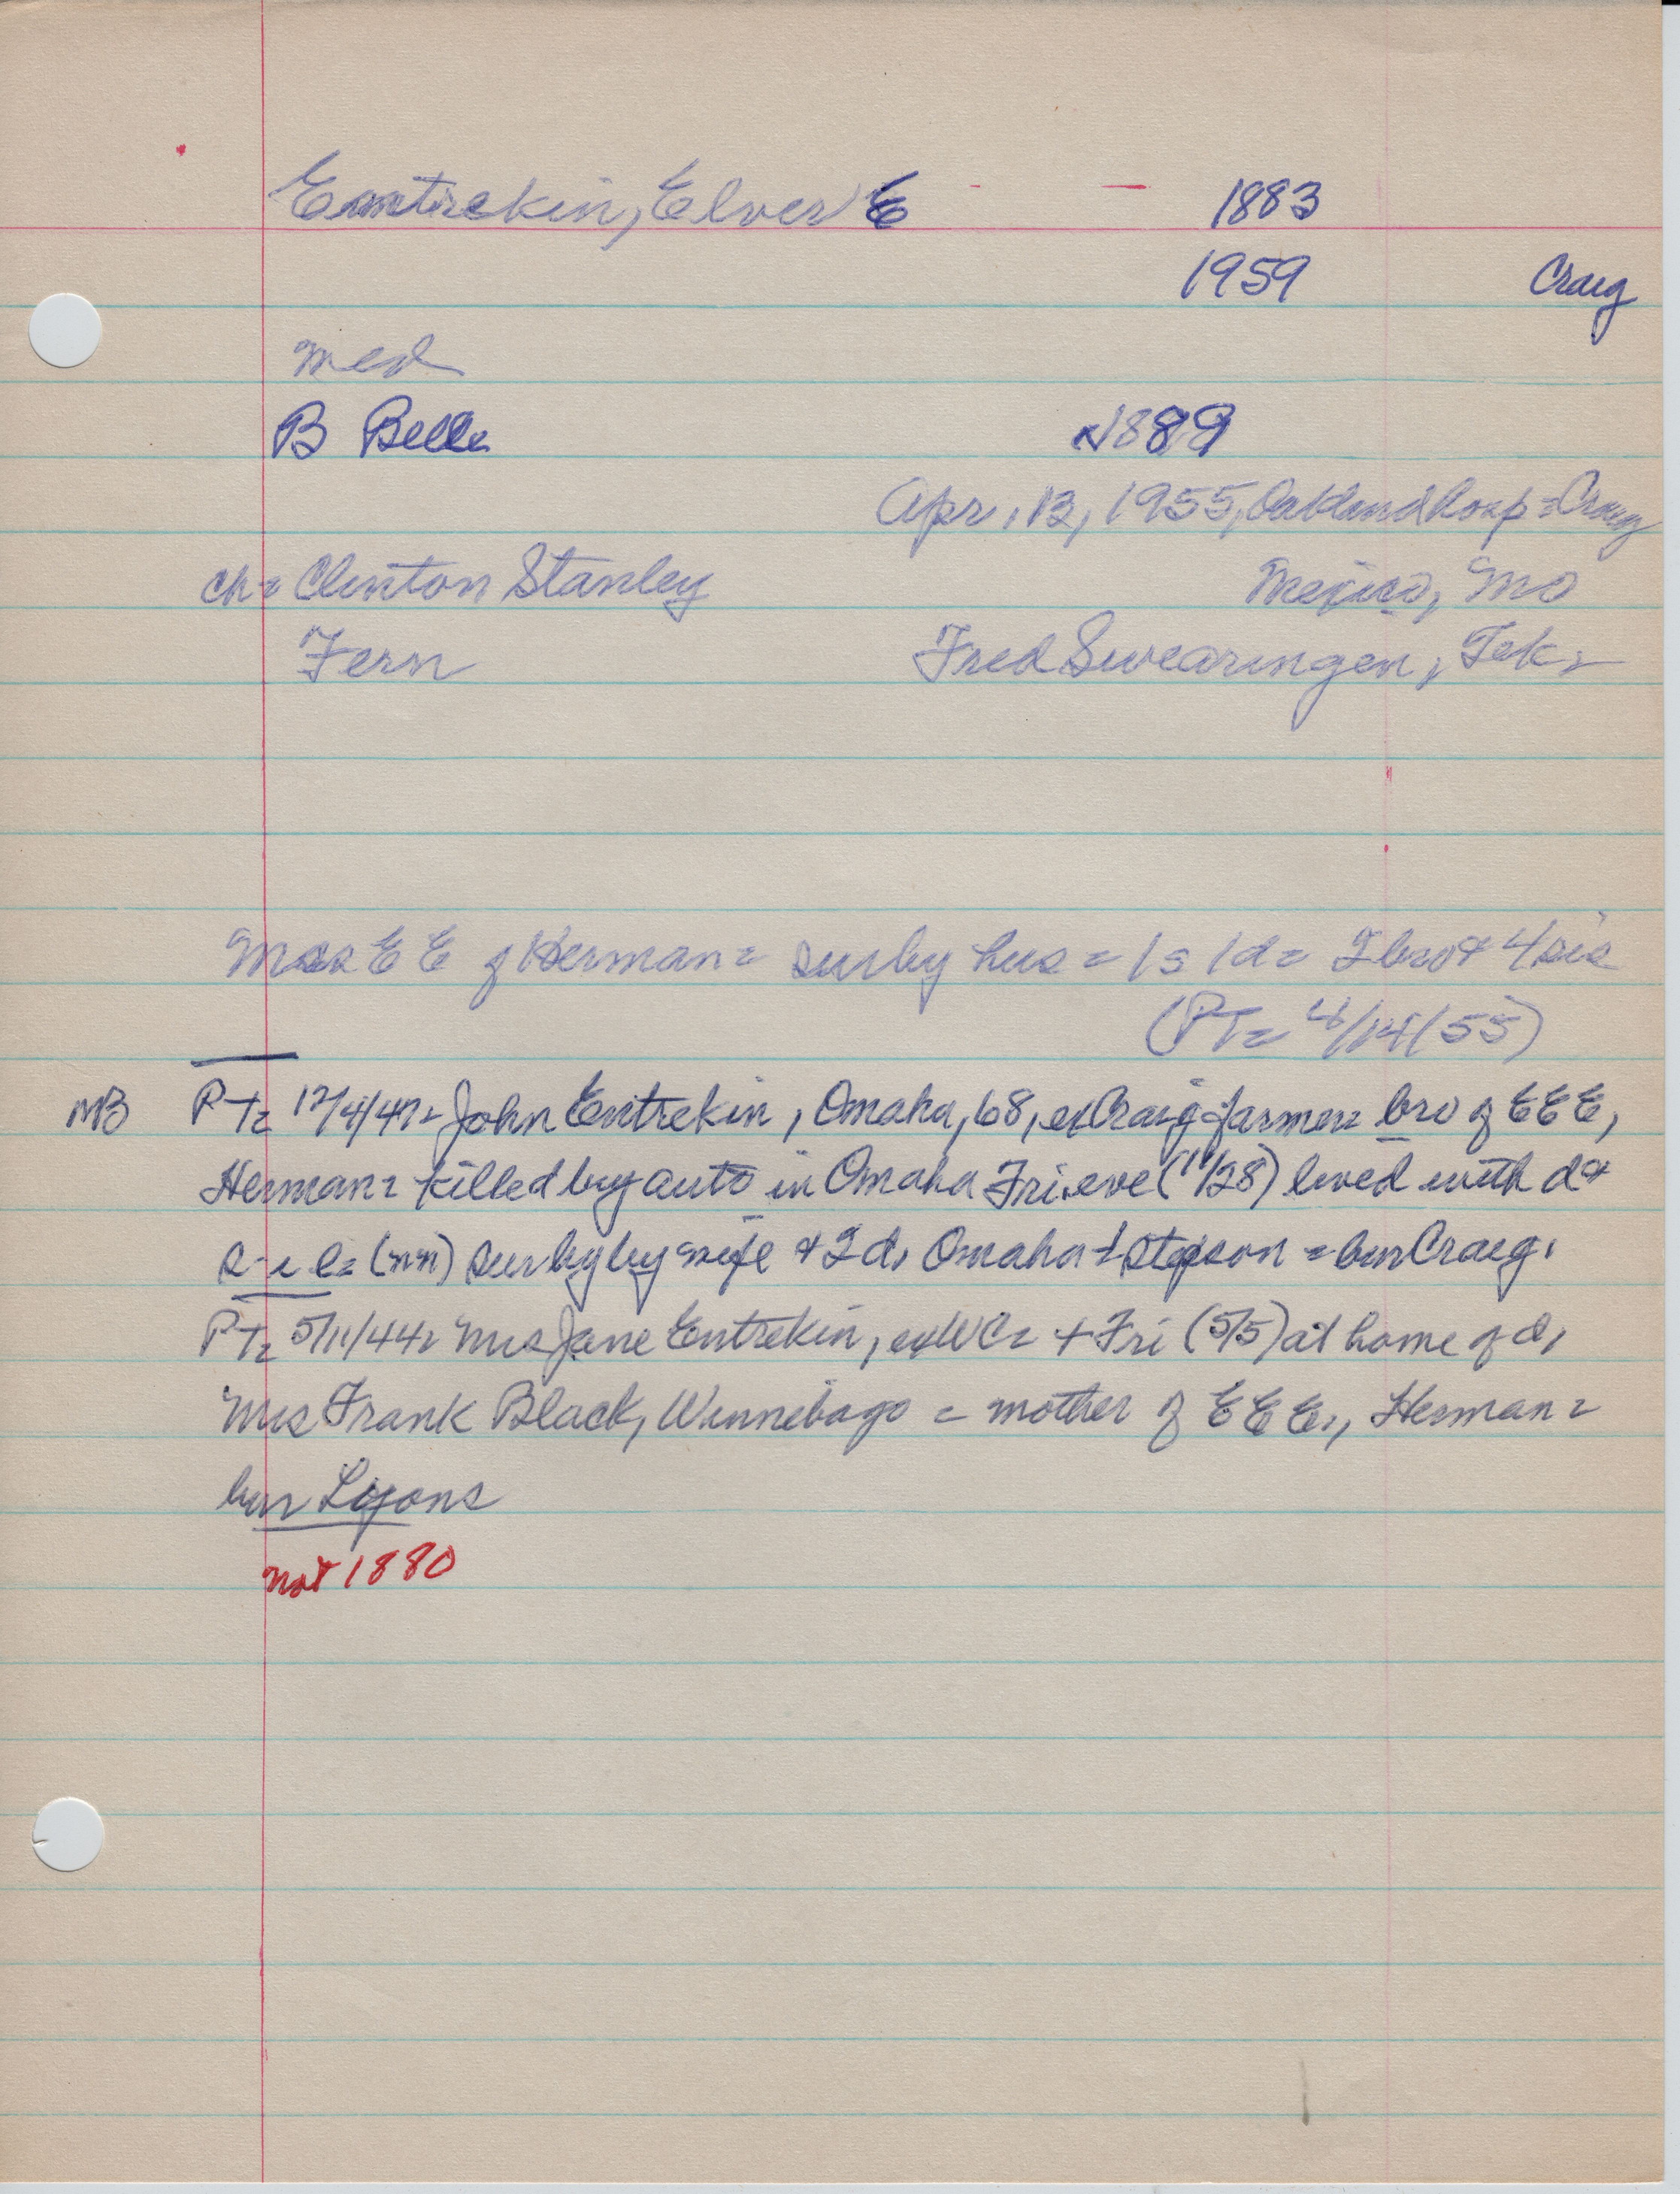 Entrekin, Elver E - - 1883
1959 Craig
med
B Belle 1889
Apr. 13, 1955, Oakland hosp = Craig
ch = Clinton Stanley Mexico, Mo
Fern Fred Swearingen, Tek =
Mrs E E of Herman = sur by hus = 1 s 1 d = 2 bro & 4 sis
(PT = 4/14/55)
MB PT = 12/4/47 = John Entrekin, Omaha, 68, ex Craig farmer = bro of E E E,
Herman = killed by auto in Omaha Fri. eve (11/28) lived with d &
s-i-l = (nn) sur by by wife & 2 d, Omaha 1 stepson = bur Craig.
PT = 5/11/44 = Mrs Jane Entrekin, ex WC = + Fri (5/5) at home of d,
Mrs Frank Black, Winnebago = mother of E E E., Herman =
bur Lyons
not 1880